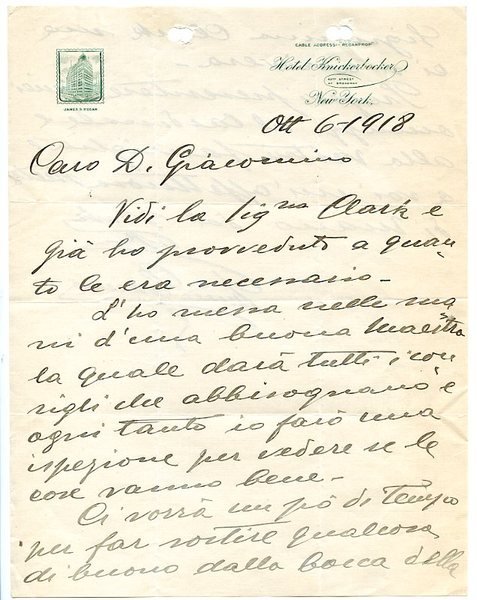 CABLE ADDRESS
Hotel Knickerbocker
42ND STREET
AT BROADWAY
New York.
JAMES B. REGAN
Ott 6-1918
Caro D. Giacomino
Vidi la Sigra Clark e
già ho provveduto a quan-
to le era necessario-
L'ho messa nelle ma
ni d'una buona Maestra
la quale darà tutti i con
sigli che abbisognano e
ogni tanto io farò una
ispezione per vedere se le
cose vanno bene-
Ci vorrà un pò di tempo
per far sortire qualcosa
di buono dalla bocca della